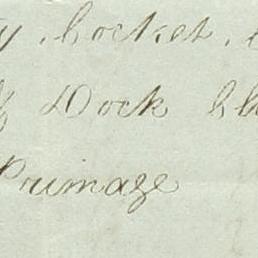 y, Cocket,
Dock
Primage